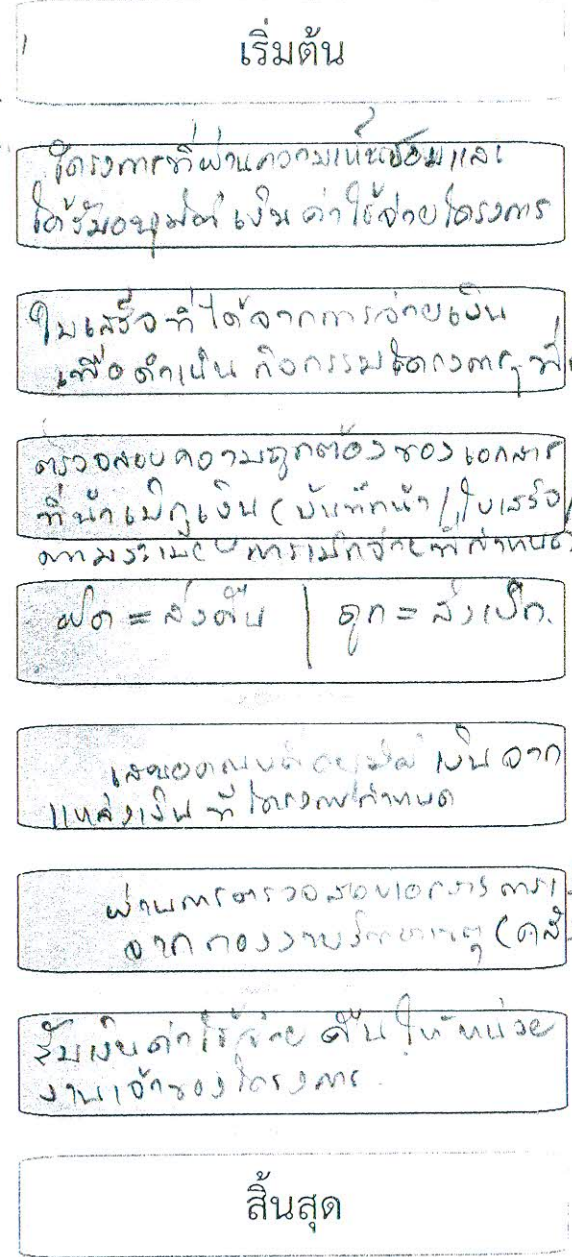 เริ่มต้น
โครงการที่ผ่านความเห็นชอบและ
ได้รับอนุมัติ เงิน ค่าใช้จ่ายโครงการ
ใบเสร็จที่ได้จากการจ่ายเงิน
เพื่อดำเนิน กิจกรรมโครงการๆ ที่
ตรวจสอบความถูกต้องของเอกสาร
ที่นำเบิกเงิน (บันทึกนำ / ใบเสร็จ /
ตามระเบียบการเบิกจ่ายที่กำหนด
ผิด = ส่งคืน | ถูก = ส่งเบิก.
เสนอคณบดี อนุมัติ เงิน จาก
แหล่งเงิน ที่ โครงการกำหนด
ผ่านการตรวจสอบเอกสาร การ
จาก กองงาน (คลั
รับเงินค่าใช้จ่าย คืน ให้หน่วย
งานเจ้าของโครงการ
สิ้นสุด